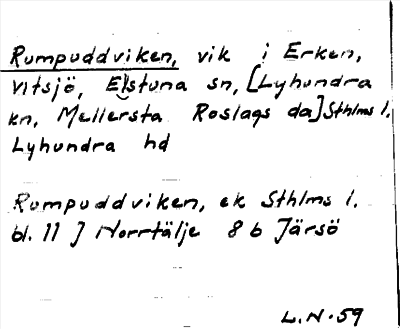 Rumpuddviken, vik i Erken,
vitsjö, Estuna sn, [Lyhundra
kn, Mellersta Roslags da] Sthlms l.
Lyhundra hd
Rumpuddviken, ek Sthlms l.
bl. 11 J Norrtälje 8 b Järsö
L.N. 59